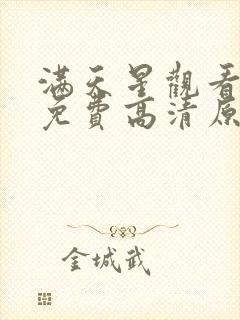 滿天星觀看
免費高清原
金城武